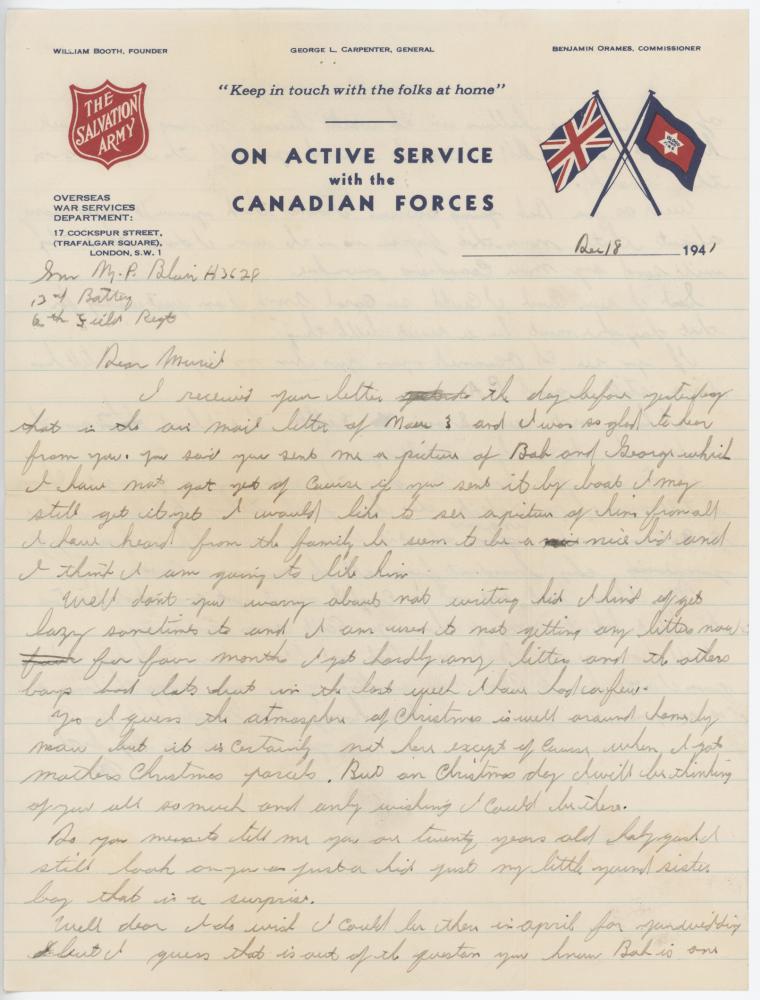 WILLIAM BOOTH, FOUNDER
GEORGE L. CARPENTER, GENERAL
BENJAMIN ORAMES, COMMISSIONER
THE SALVATION ARMY
"Keep in touch with the folks at home"
ON ACTIVE SERVICE
with the
CANADIAN FORCES
OVERSEAS
WAR SERVICES
DEPARTMENT:
17 COCKSPUR STREET,
(TRAFALGAR SQUARE),
LONDON, S.W.1
Dec 18 1941
Gnr M. P. Blair H3628
13th Battery
6th Field Regt
Dear Muriel
I received your letter the day before yesterday
that is the air mail letter of Nov 3 and I was so glad to hear
from you. you said you sent me a picture of Bob and George which
I have not got yet of course if you sent it by boat I may
still get it yet I would like to see a picture of him from all
I have heard from the family he seem to be a nice kid and
I think I am going to like him
Well don't you worry about not writing kid I kind of get
lazy sometimes to and I am used to not getting any letters now
for four months I got hardly any letters and the others
boys had lots but in the last week I have had a few.
Yes I guess the atmosphere of Christmas is well around home by
now but it is certainly not here except of course when I got
mothers Christmas parcels. But on Christmas day I will be thinking
of you all so much and only wishing I could be there.
Do you mean to tell me you are twenty years old gosh I
still look on you as just a kid just my little young sister
boy that is a surprise.
Well dear I do wish I could be there in april for your wedding
but I guess that is out of the question you know Bob is one